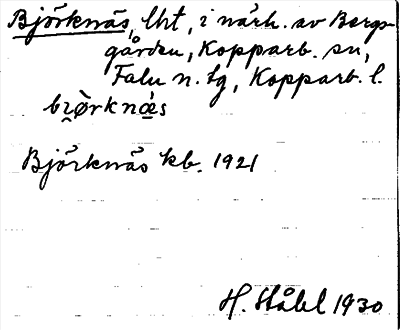 Björknäs, lht, i närh. av Bergs-
gården, Kopparb. sn,
Falu n. tg, Kopparb. l.
bi̯ò̱rknä̱́s
Björknäs kb. 1921
H. Ståhl 1930